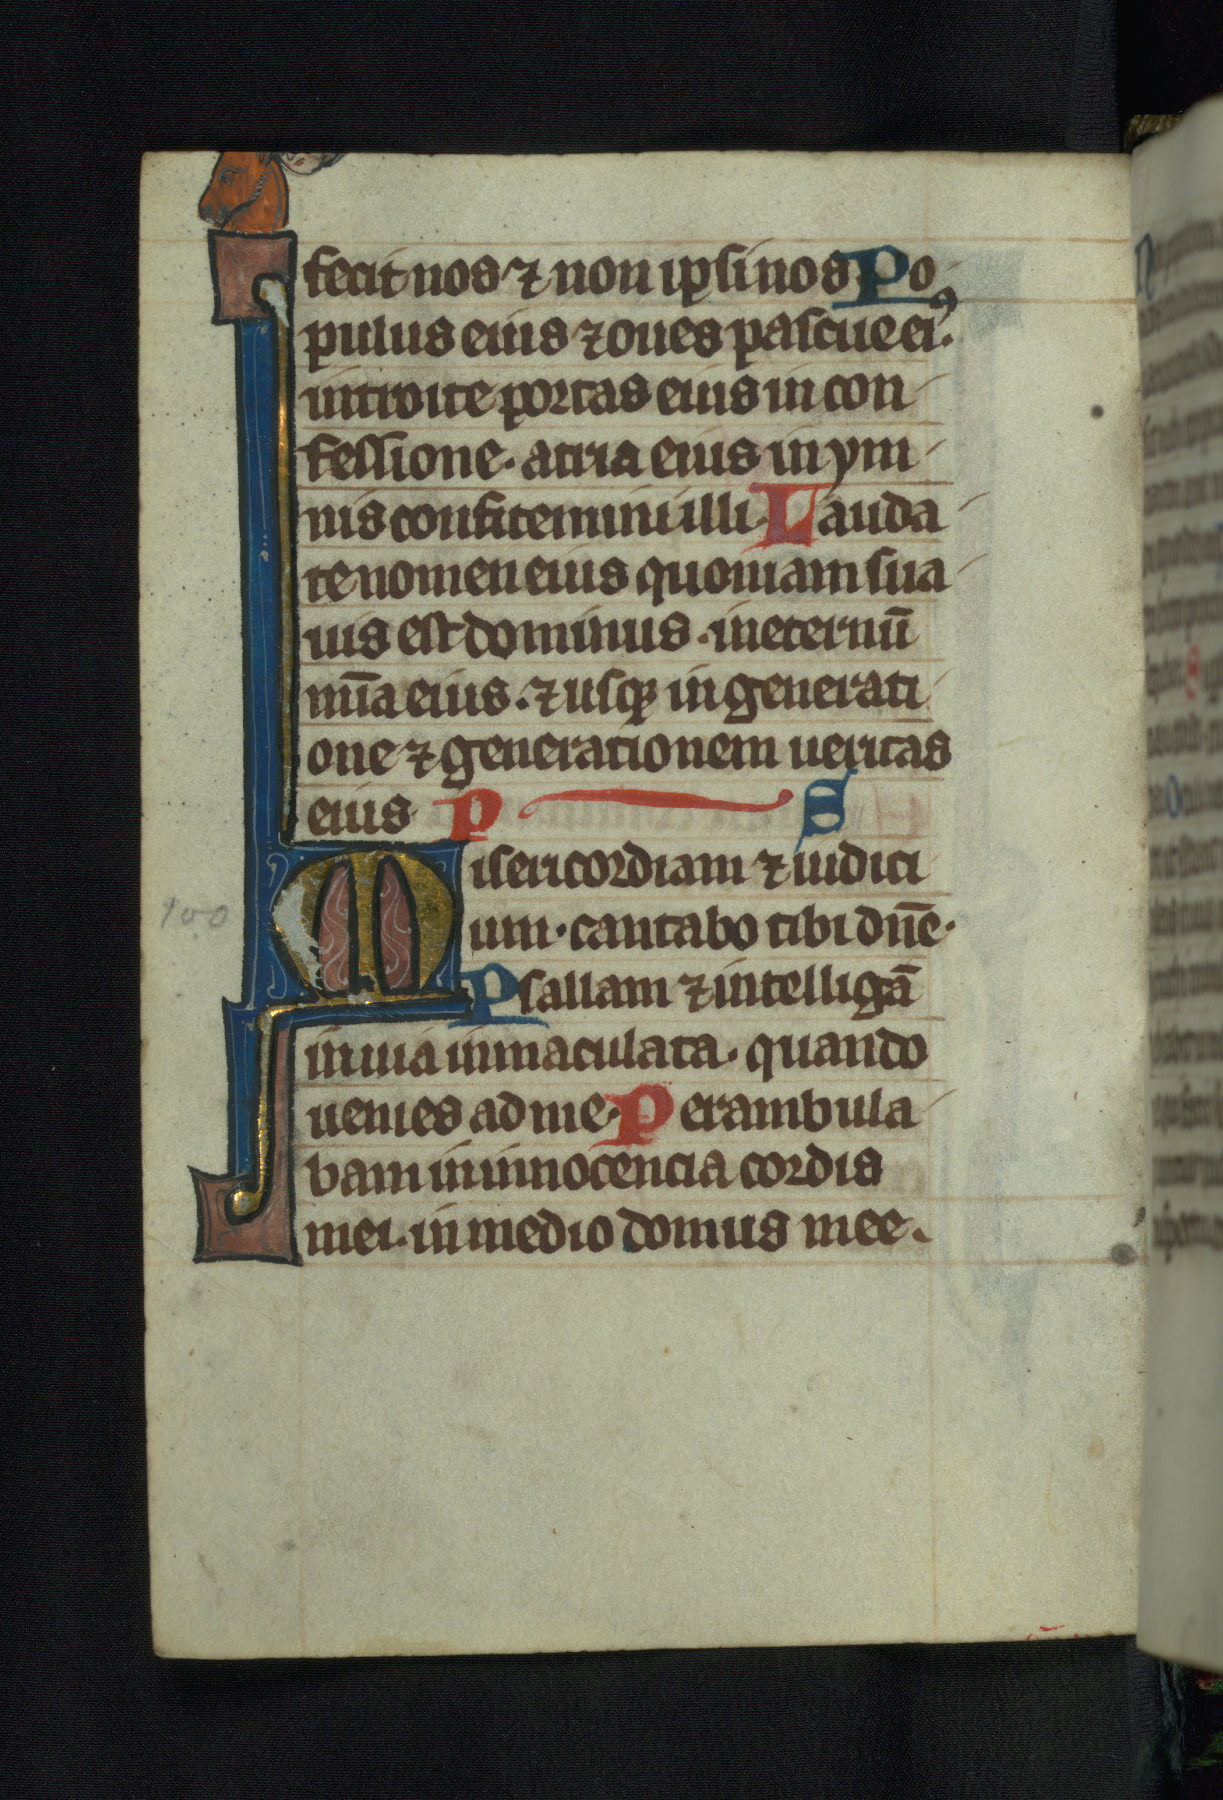 fecit nos ⁊ non ipsi nos Po
pulus eius ⁊ oues pascue eiꝰ.
introite portas eius in con
fessione. atria eius in ym
nis confitemini illi. Lauda
te nomen eius quoniam sua
uis est dominus. in eternū
mīa eius. ⁊ usqꝫ in generati
one ⁊ generationem ueritas
eius P S
Misericordiam ⁊ iudici
um. cantabo tibi dn̄e.
Psallam ⁊ intelligā
in uia inmaculata. quando
uenies ad me. Perambula
bam in innocencia cordis
mei. in medio domus mee.
100